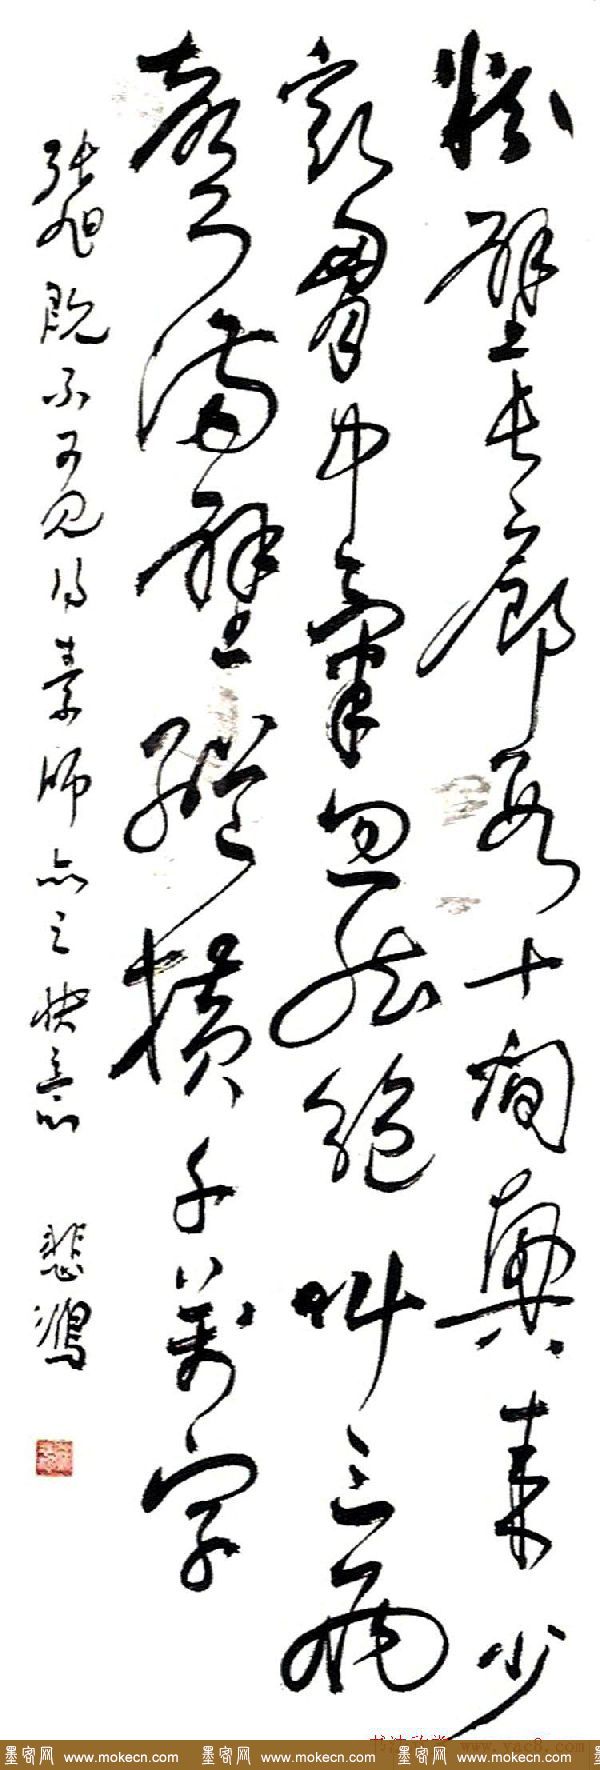 粉壁長廊數十間興來少
豁胷中氣忽然絕叫三五
聲滿壁縱橫千萬字
張旭既不可見得素師亦足快意 悲鴻
书法欣赏 www.yac8.com
墨客网 www.mokecn.com 墨客网 www.mokecn.com 墨客网 www.mokecn.com